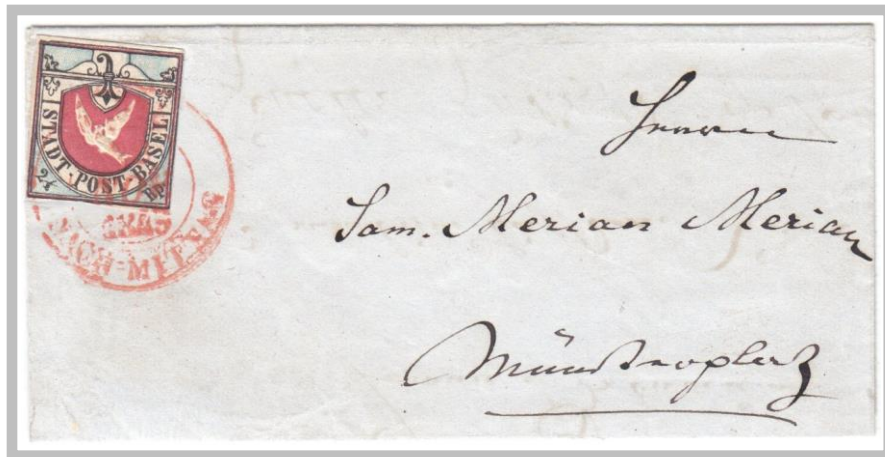 STADT·POST·BASEL
2½ Rp.
NACH-MITTAG
Herrn
Sam. Merian Merian
Münsterplatz